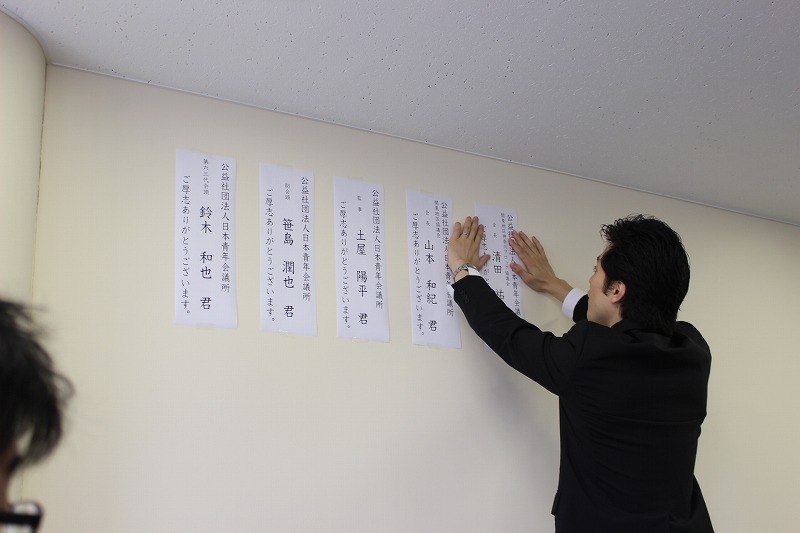 公益社団法人日本青年会議所
第六三代会頭
鈴木 和也 君
ご厚志ありがとうございます。
公益社団法人日本青年会議所
副会頭
笹島 潤也 君
ご厚志ありがとうございます。
公益社団法人日本青年会議所
監事
土屋 陽平 君
ご厚志ありがとうございます。
公益社団法人日本青年会議所
関東地区協議会
会長
山本 和紀 君
ご厚志ありがとうございます。
公益社団法人
会長
清田